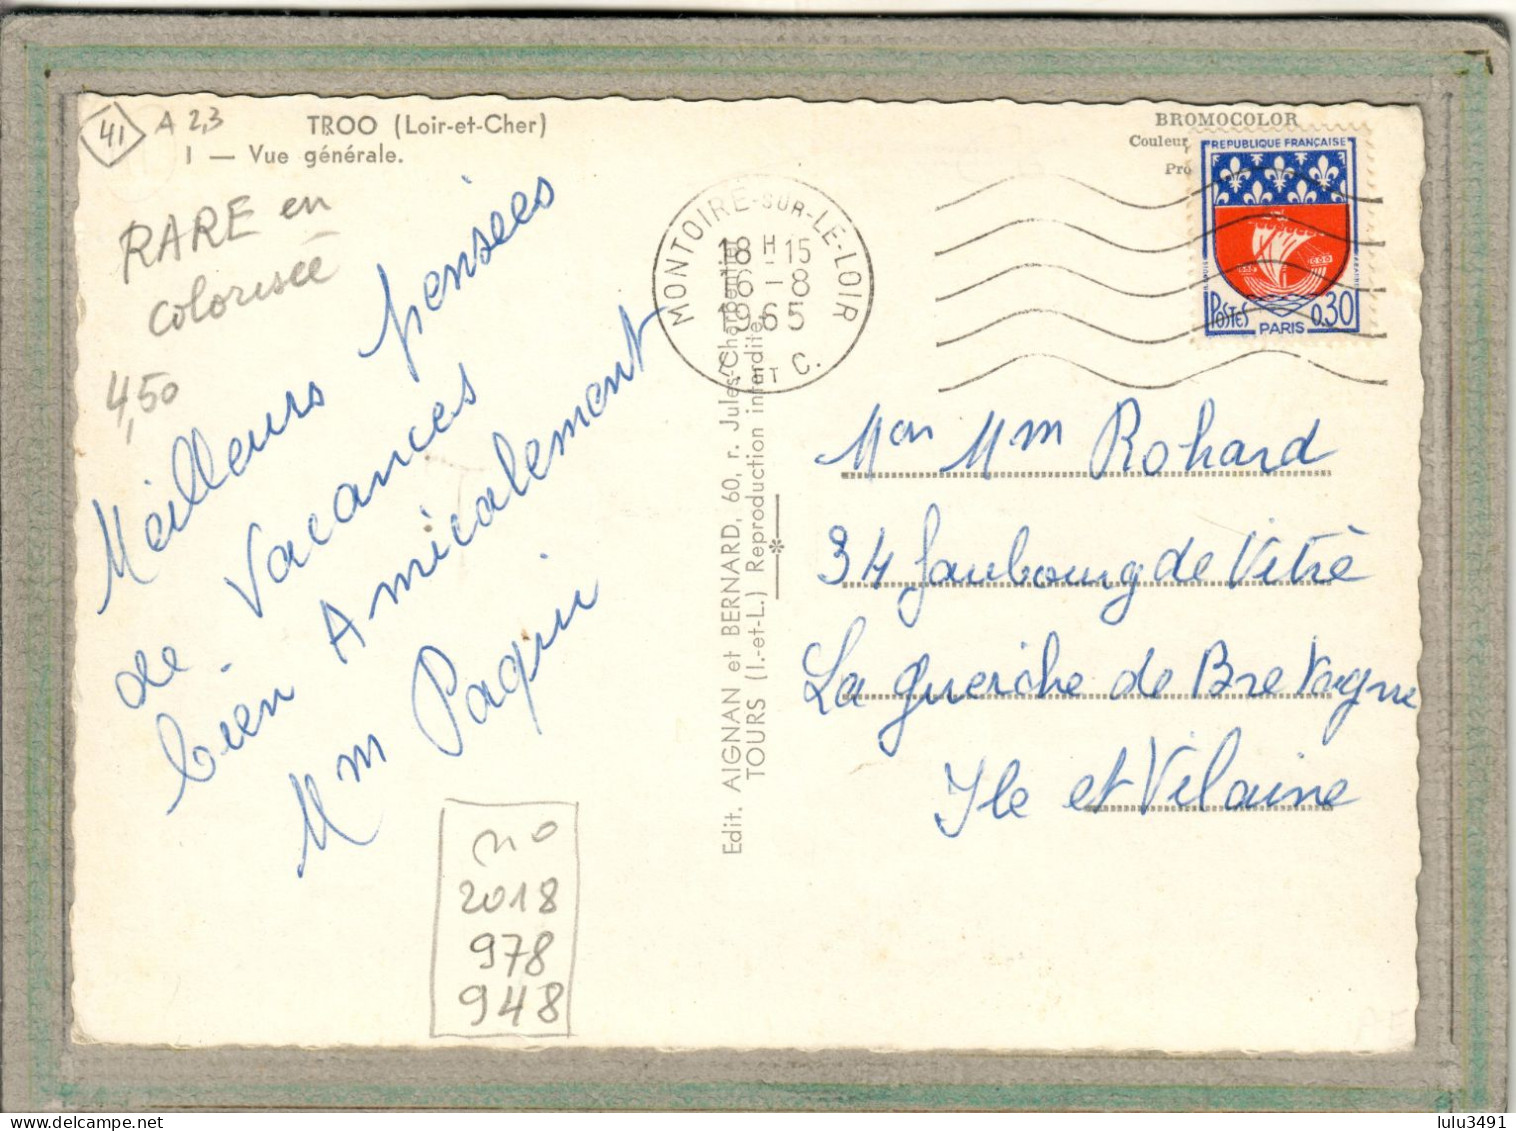 41
A 2,3
TROO (Loir-et-Cher)
1 — Vue générale.
RARE en
colorisée
4,50
Meilleurs pensées
de Vacances
bien Amicalement
Mm Paquin
no
2018
978
948
Edit. AIGNAN et BERNARD, 60, r. Jules-Charpentier
TOURS (I.-et-L.) Reproduction interdite.
MONTOIRE-SUR-LE-LOIR
18 H 15
6 - 8
1965
L. ET C.
BROMOCOLOR
Couleur
Pro
REPUBLIQUE FRANÇAISE
POSTES
PARIS
0,30
Mon Mm Rohard
34 faubourg de Vitrè
La guerche de Bretagne
Ile et Vilaine
lulu3491